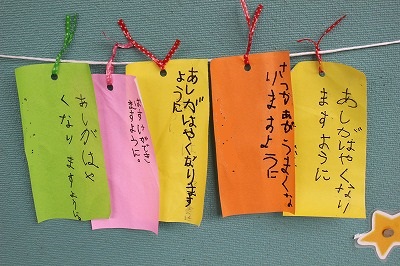 あしがはや
くなりますように
はすけができ
ますように
あしがはやくなります
ように
さっかあがうまくな
りますように
あしがはやくなり
ますように